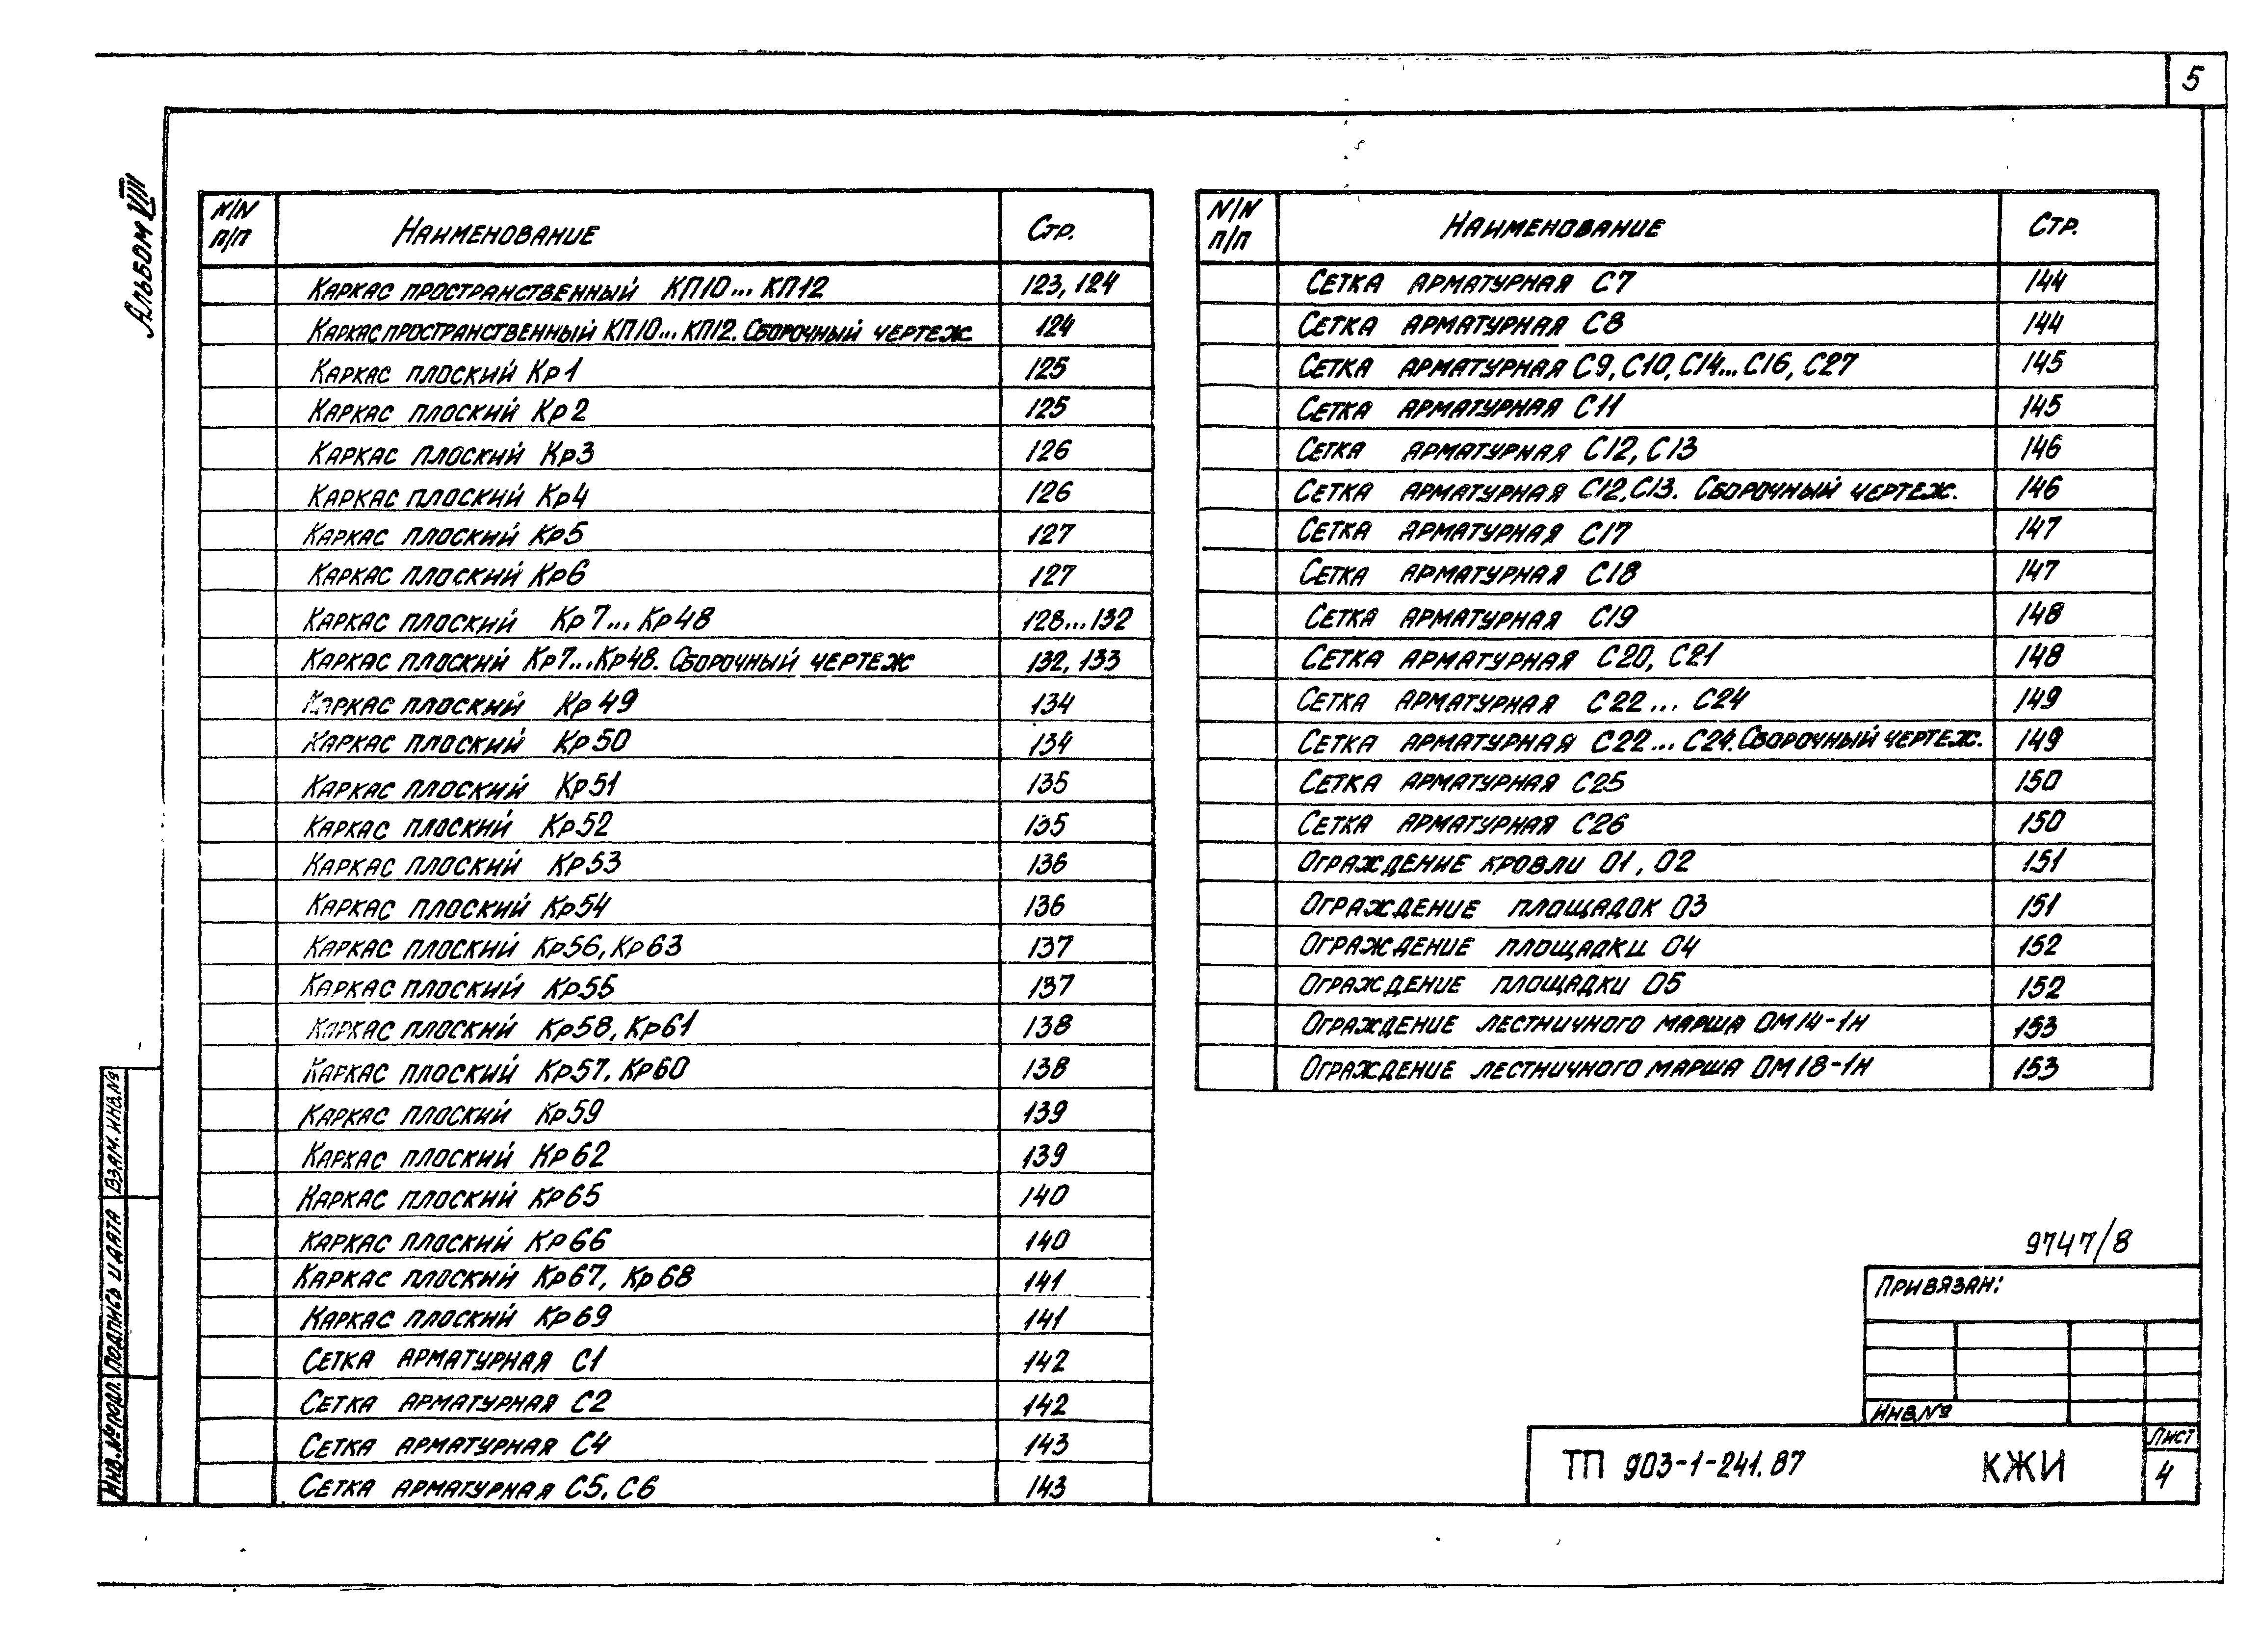 5
Альбом VIII
N/N п/п Наименование Стр.
Каркас пространственный КП10...КП12 123, 124
Каркас пространственный КП10...КП12. Сборочный чертеж 124
Каркас плоский Кр1 125
Каркас плоский Кр2 125
Каркас плоский Кр3 126
Каркас плоский Кр4 126
Каркас плоский Кр5 127
Каркас плоский Кр6 127
Каркас плоский Кр7...Кр48 128...132
Каркас плоский Кр7...Кр48. Сборочный чертеж 132, 133
Каркас плоский Кр49 134
Каркас плоский Кр50 134
Каркас плоский Кр51 135
Каркас плоский Кр52 135
Каркас плоский Кр53 136
Каркас плоский Кр54 136
Каркас плоский Кр56, Кр63 137
Каркас плоский Кр55 137
Каркас плоский Кр58, Кр61 138
Каркас плоский Кр57, Кр60 138
Каркас плоский Кр59 139
Каркас плоский Кр62 139
Каркас плоский Кр65 140
Каркас плоский Кр66 140
Каркас плоский Кр67, Кр68 141
Каркас плоский Кр69 141
Сетка арматурная С1 142
Сетка арматурная С2 142
Сетка арматурная С4 143
Сетка арматурная С5, С6 143
N/N п/п Наименование Стр.
Сетка арматурная С7 144
Сетка арматурная С8 144
Сетка арматурная С9, С10, С14...С16, С27 145
Сетка арматурная С11 145
Сетка арматурная С12, С13 146
Сетка арматурная С12, С13. Сборочный чертеж. 146
Сетка арматурная С17 147
Сетка арматурная С18 147
Сетка арматурная С19 148
Сетка арматурная С20, С21 148
Сетка арматурная С22...С24 149
Сетка арматурная С22...С24. Сборочный чертеж. 149
Сетка арматурная С25 150
Сетка арматурная С26 150
Ограждение кровли О1, О2 151
Ограждение площадок О3 151
Ограждение площадки О4 152
Ограждение площадки О5 152
Ограждение лестничного марша ОМ14-1н 153
Ограждение лестничного марша ОМ18-1н 153
9747/8
Привязан:
Инв.№
ТП 903-1-241.87 КЖИ
Лист
4
Инв.№ подл. Подпись и дата Взам. инв.№